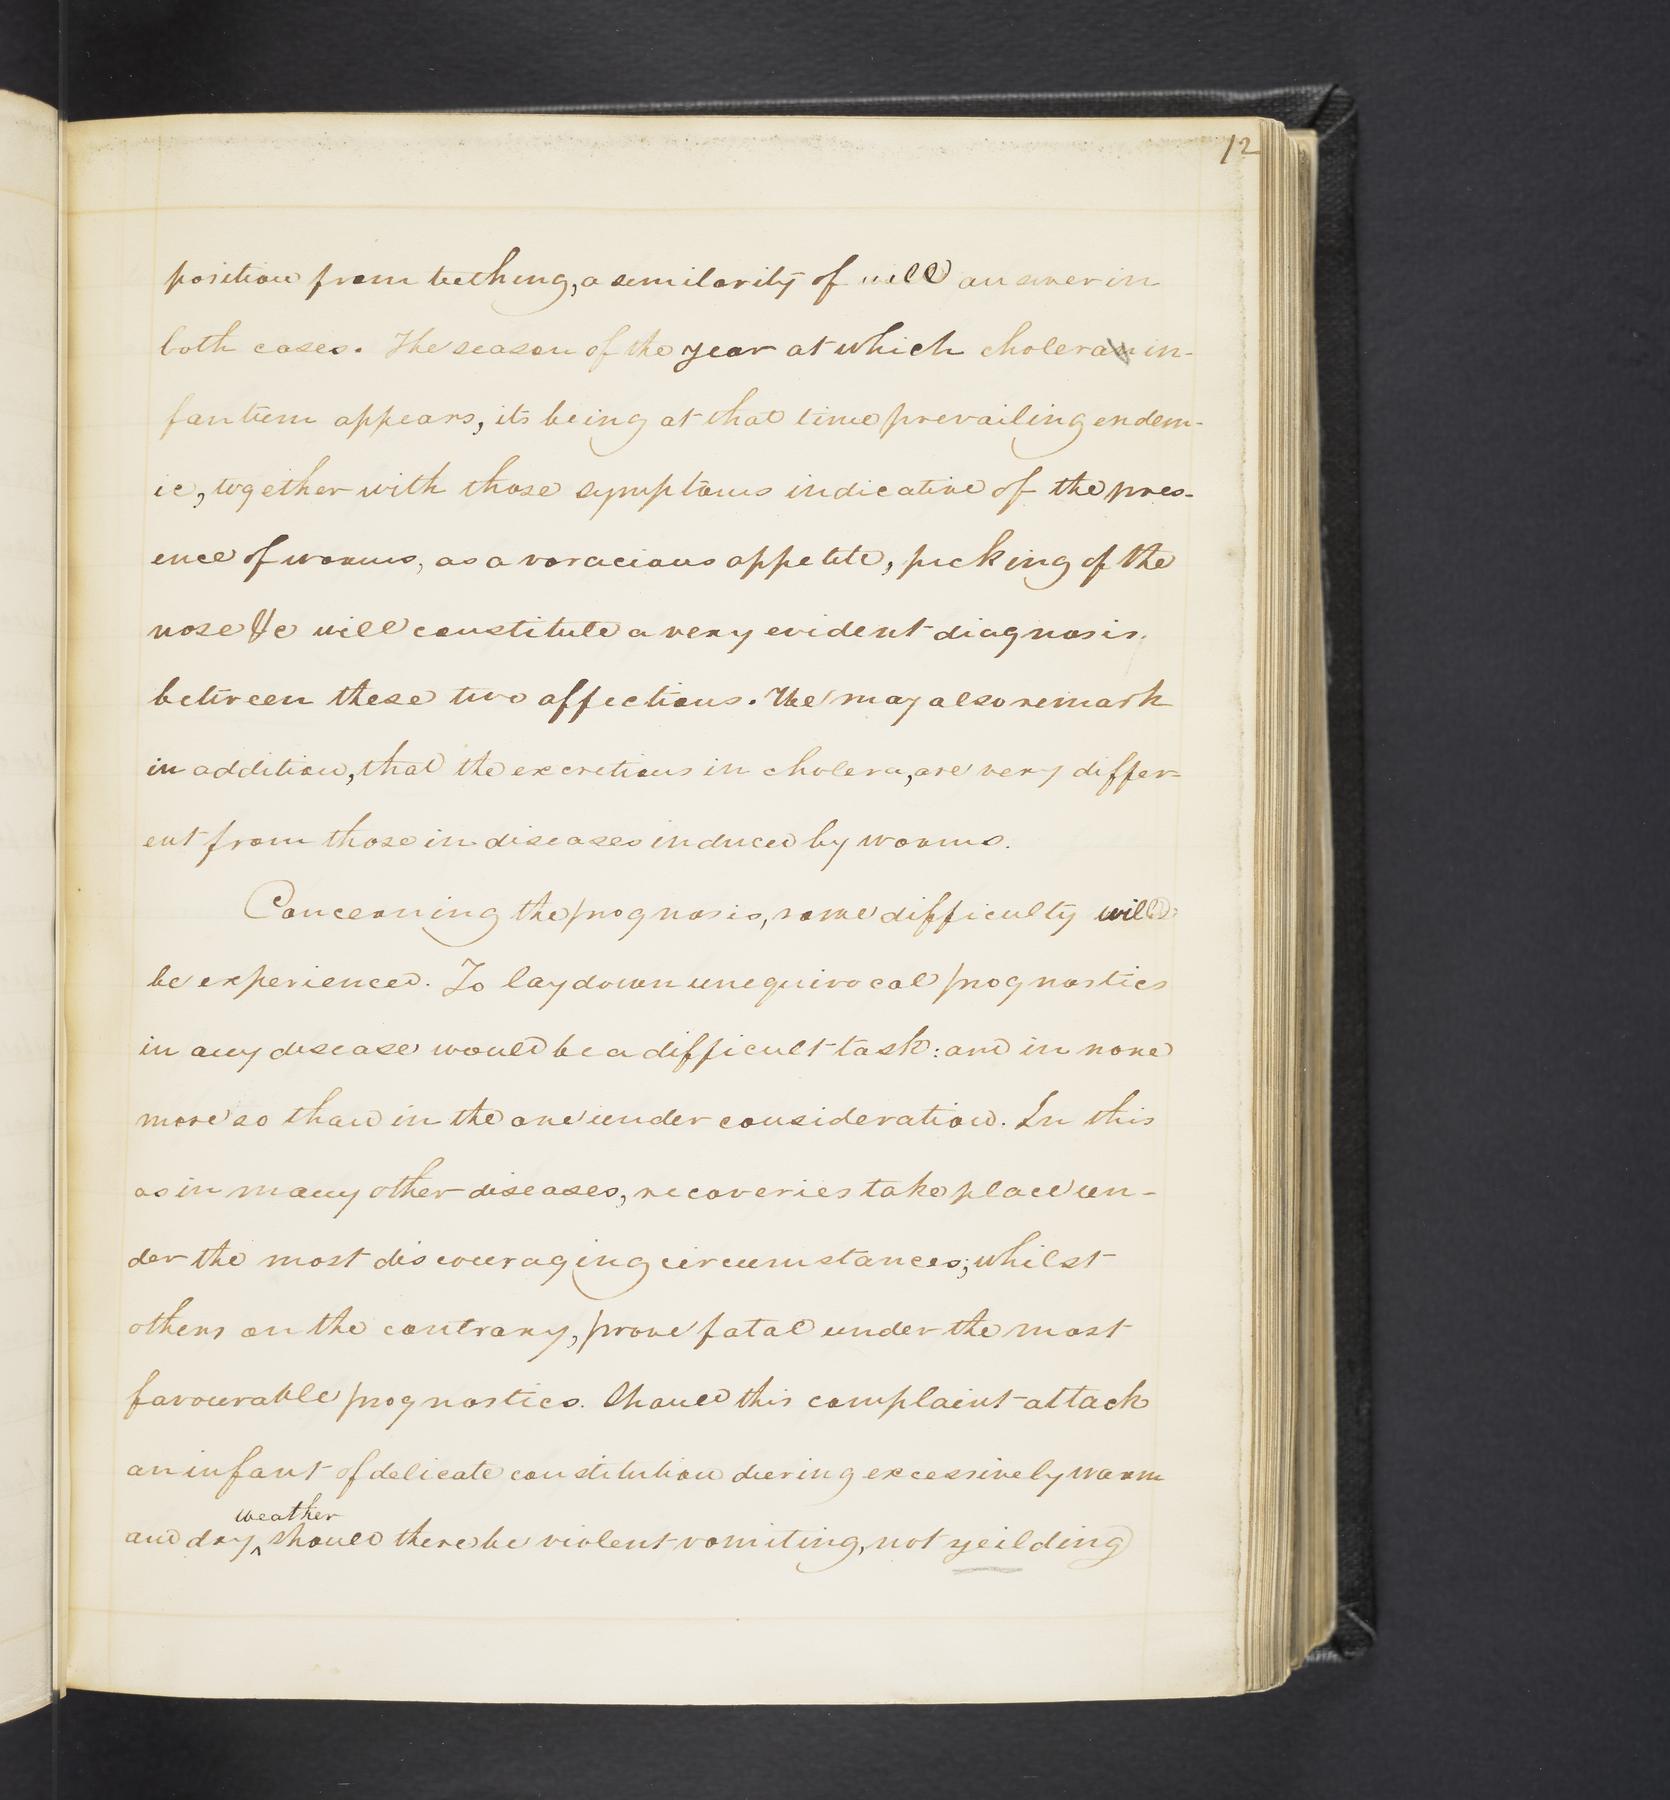 12
position from teething, a similarity of will answer in
both cases. The season of the year at which cholera in-
fantum appears, its being at that time prevailing endem-
ic, together with those symptoms indicative of the pres-
ence of worms, as a voracious appetite, picking of the
nose &c will constitute a very evident diagnosis.
between these two affections. We may also remark
in addition, that the excretions in cholera, are very differ-
ent from those in diseases induced by worms.
Concerning the prognosis, some difficulty will
be experienced. To lay down unequivocal prognostics
in any disease would be a difficult task: and in none
more so than in the one under consideration. In this
as in many other diseases, recoveries take place un-
der the most discouraging circumstances; whilst
others on the contrary, prove fatal under the most
favourable prognostics. Should this complaint attack
an infant of delicate constitution during excessively warm
weather
and dry ^ should there be violent vomiting, not yeilding